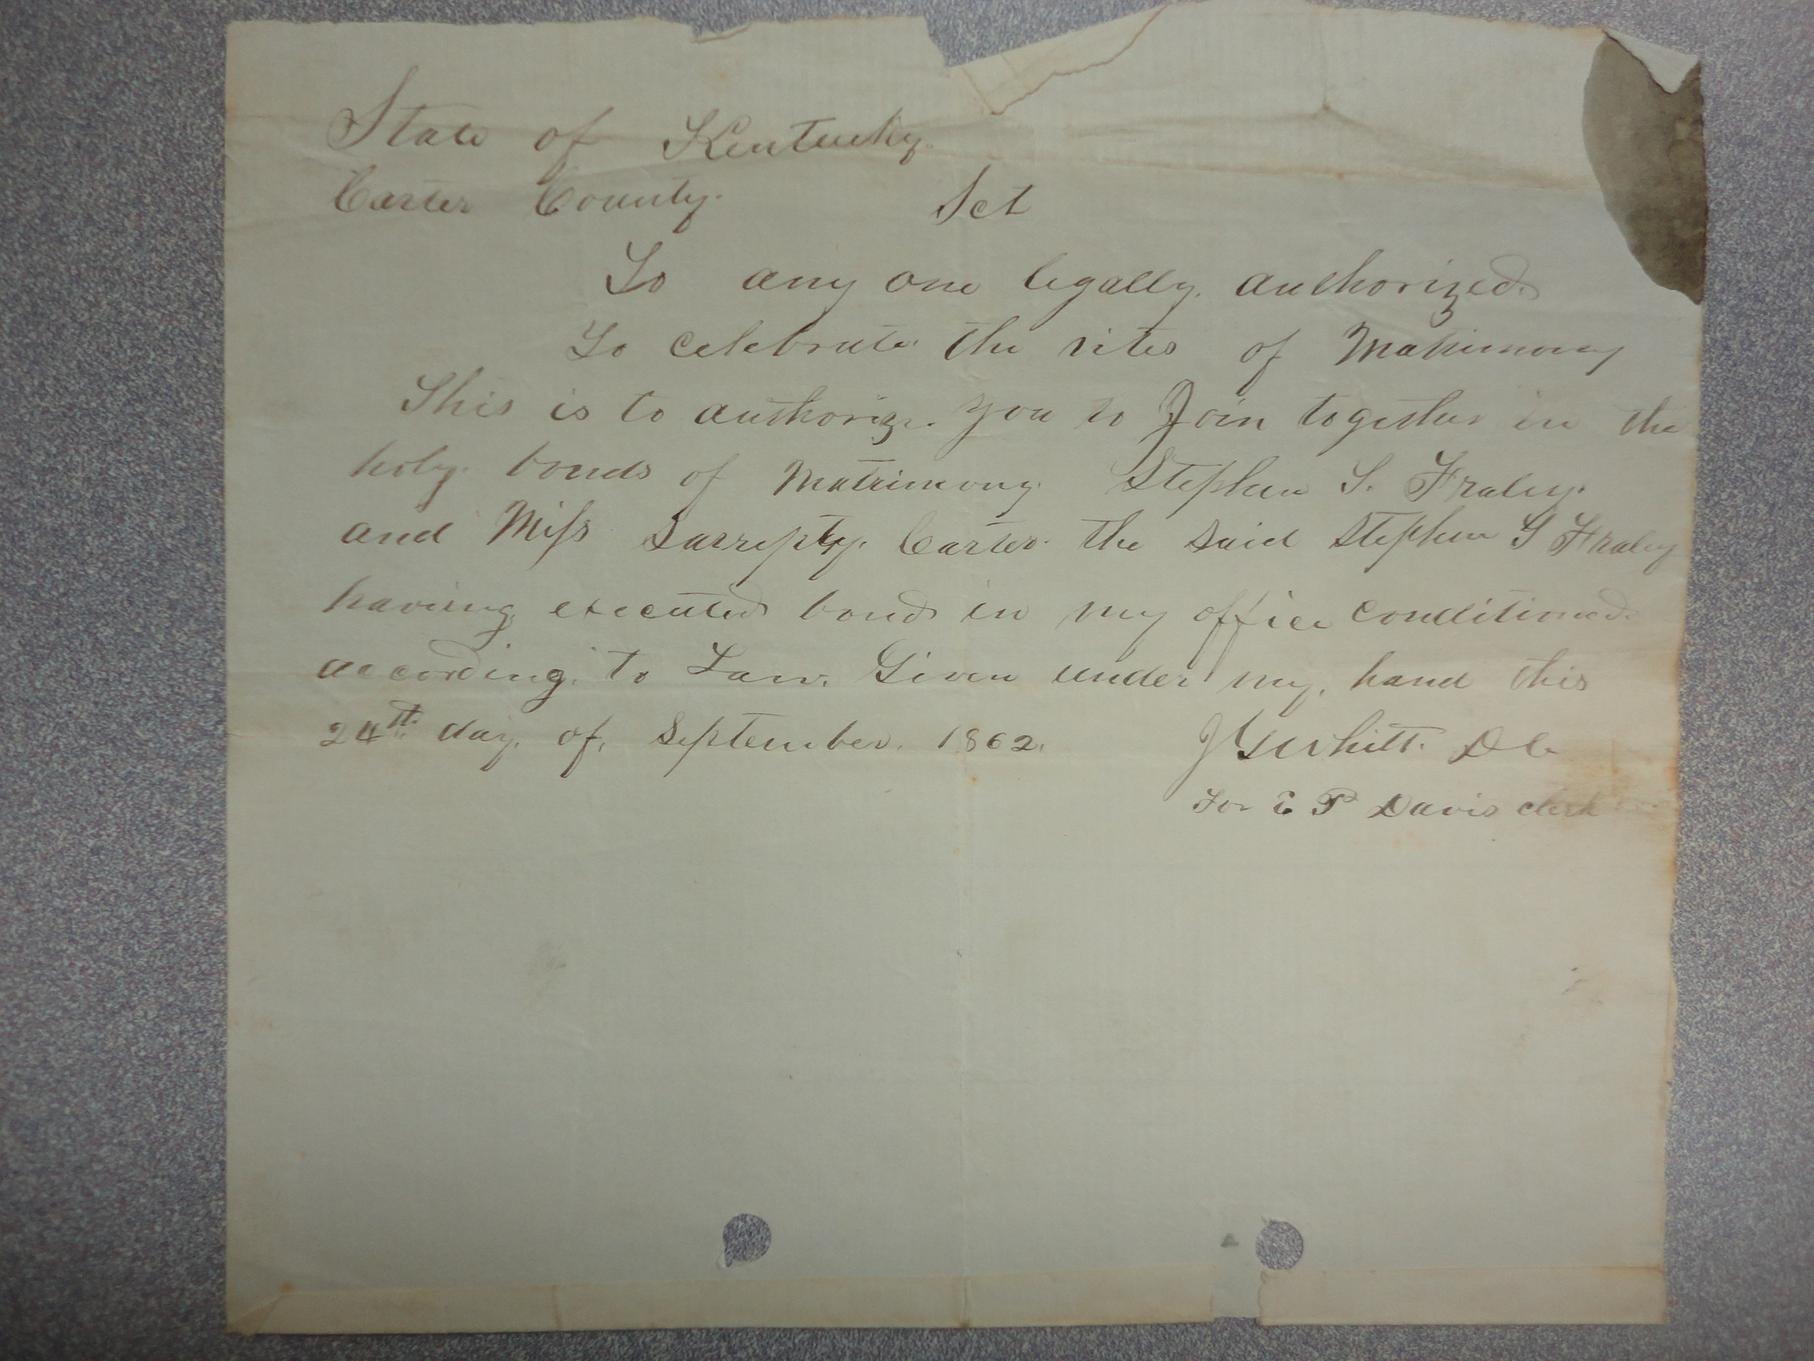 State of Kentucky
Carter County. Sct
To any one legally authorized
To celebrate the rites of Matrimony
This is to authorize you to Join together in the
holy bonds of Matrimony Stephen S. Fraley.
and Miss Sarrepty Carter the said Stephen S Fraley
having executed bond in my office conditioned
according to Law. Given under my hand this
24th day of September. 1862. J Whitt. D C
For E P Davis clerk